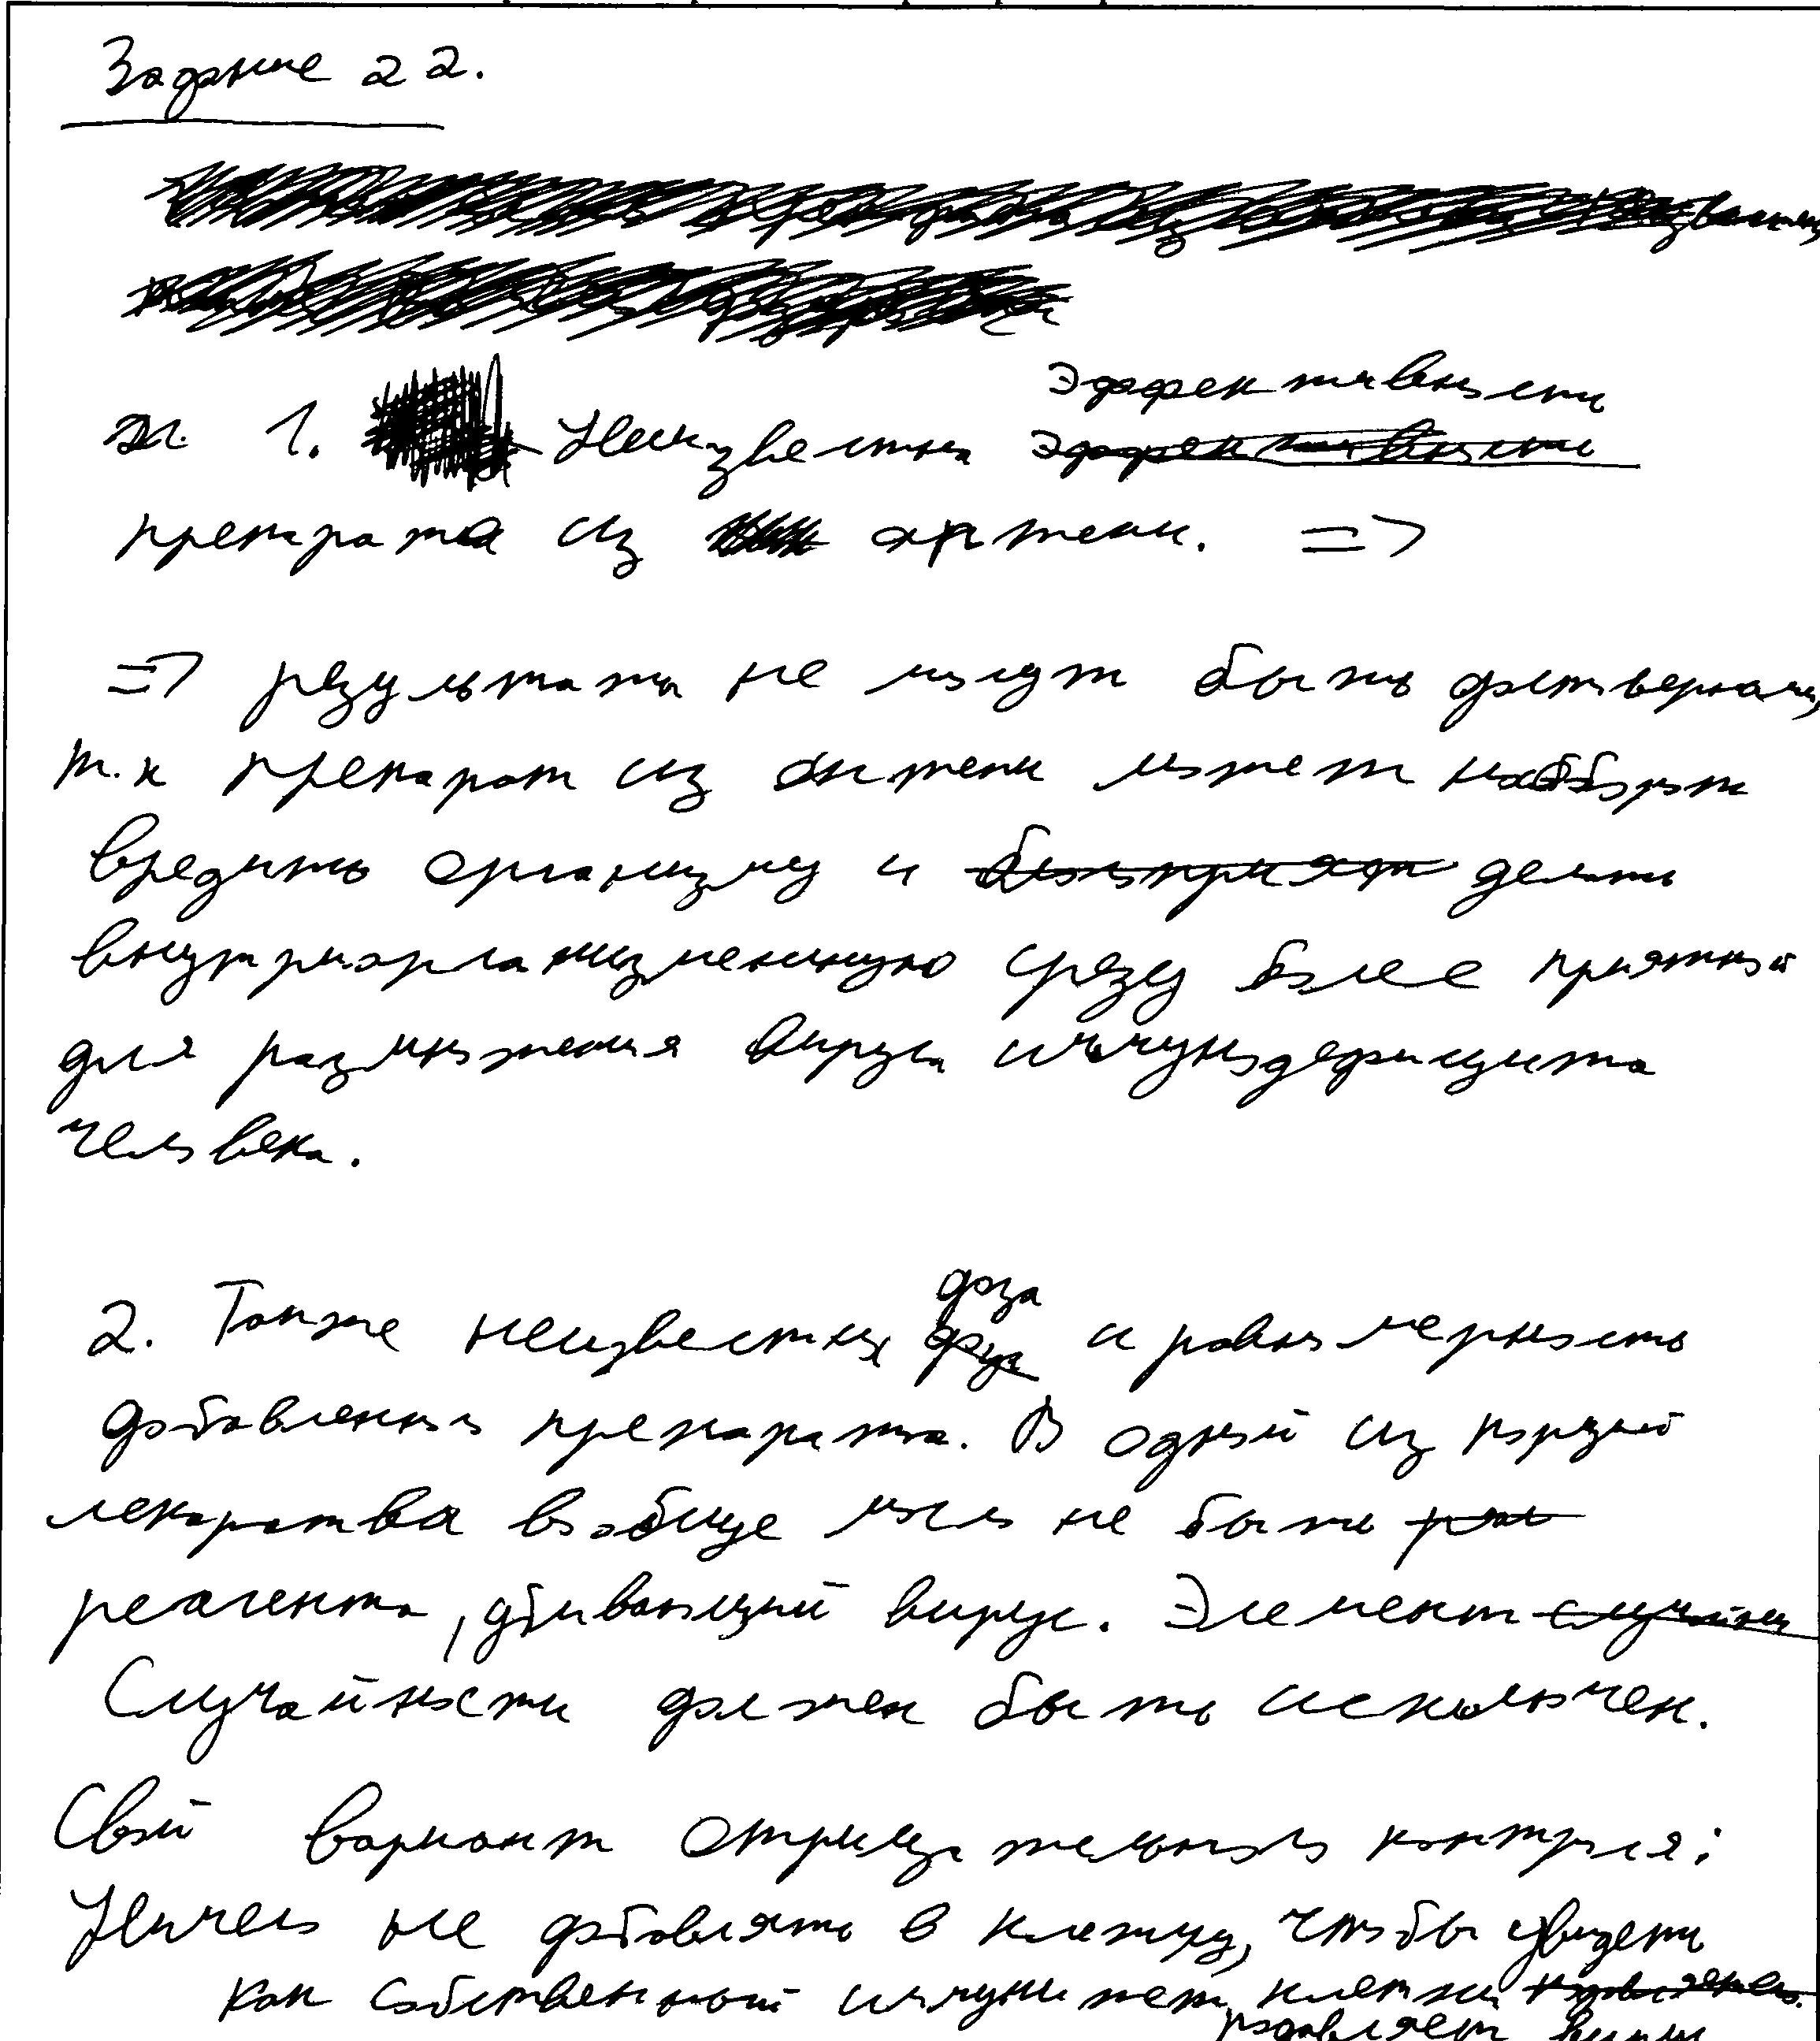 Задание 22.
1. Неизвестна эффективность
препарата из аптеки. =>
=> результаты не могут быть достверными,
т.к препарат из аптеки может наоборот
вредить организму и делать
внутриорганизменную среду более приятной
для размножения вируса иммунодефицита
человека.
2. Также неизвестны доза и равномерность
добавления препарата. В одной из порций
лекарства вообще могло не быть
реагента, убивающий вирус. Элемент
Случайности должен быть исключен.
Свой вариант отрицательного контроля:
Ничего не добавлять в клетку, чтобы увидеть
как собственный иммунитет клетки
подавляет вирус